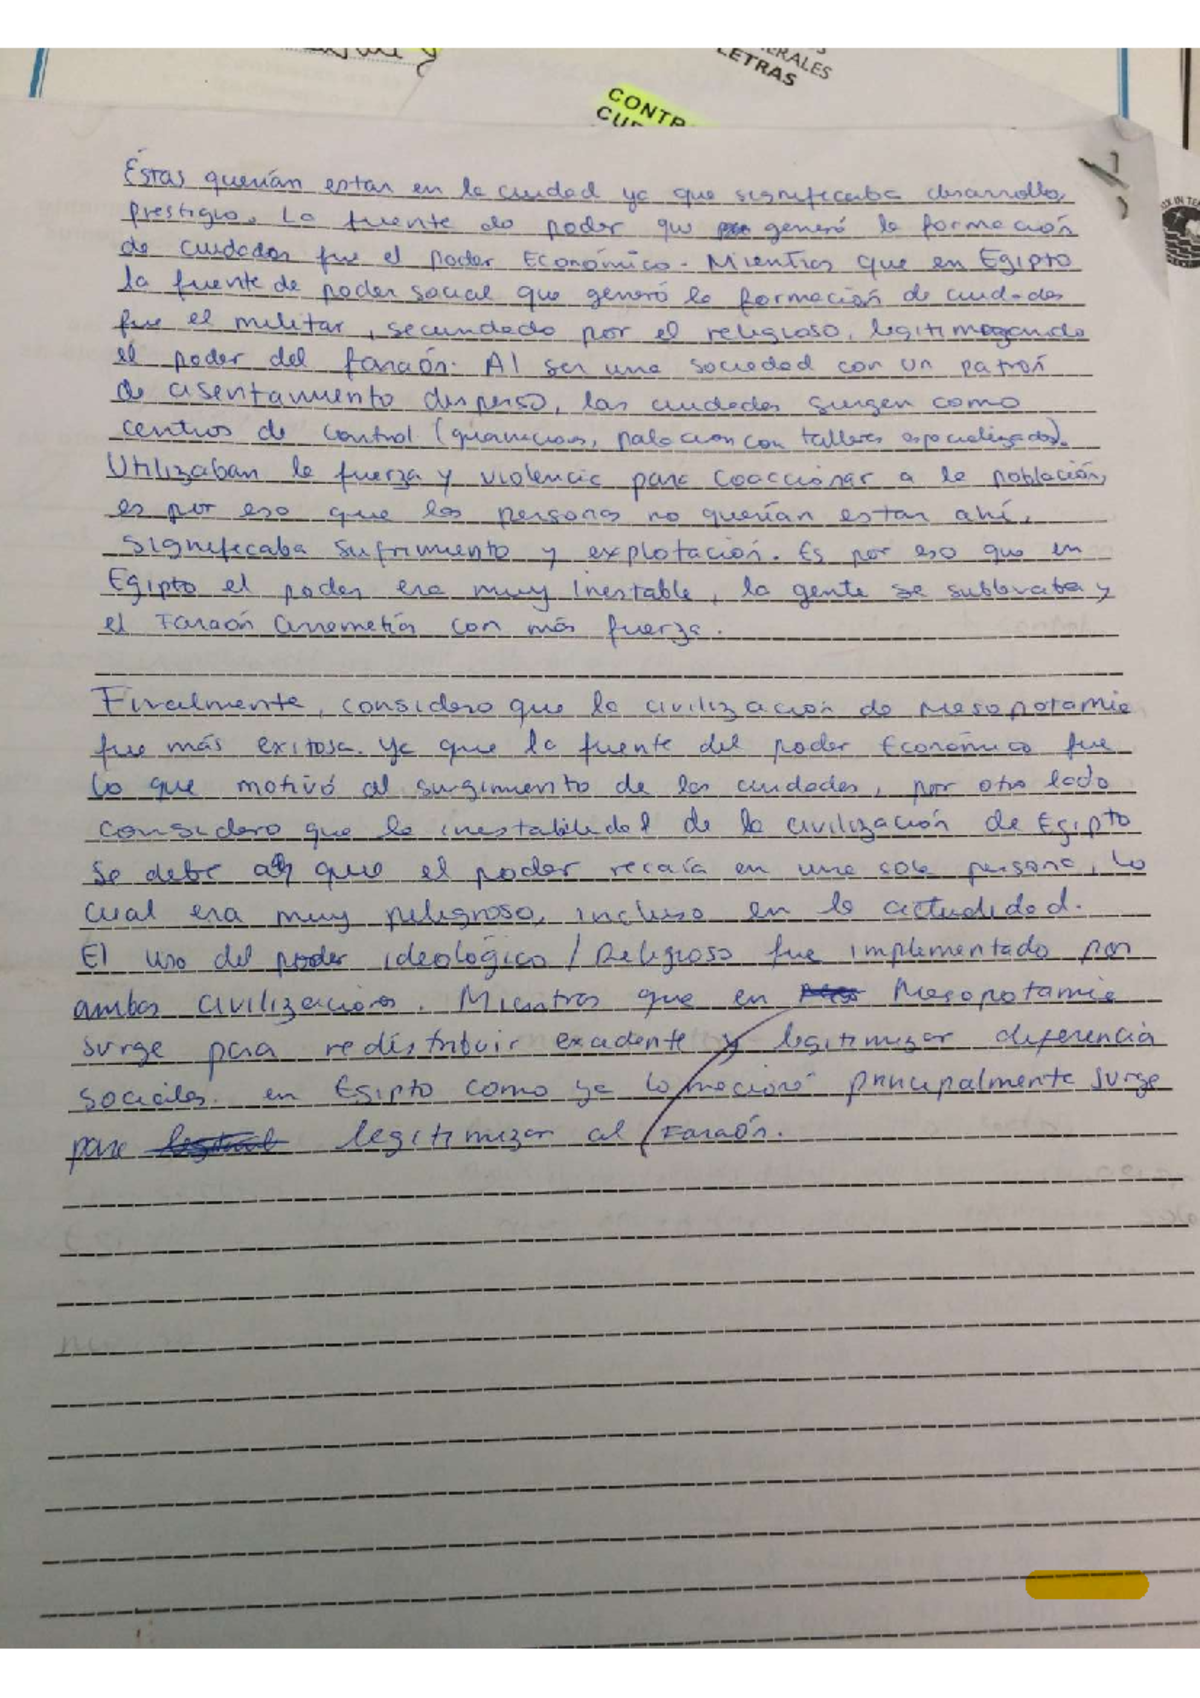 ERALES
LETRAS
CONTR
Éstas querían estar en la ciudad ya que significaba desarrollo,
prestigio. La fuente de poder que generó la formación
de cuidades fue el poder Económico. Mientras que en Egipto
la fuente de poder social que generó la formación de ciudades
fue el militar, secundado por el religioso, legitimando
el poder del faraón. Al ser una sociedad con un patrón
de asentamiento disperso, las ciudades surgen como
centros de control (guarniciones, palacios con talleres especializados).
Utilizaban la fuerza y violencia para coaccionar a la población,
es por eso que las personas no querían estar ahí,
significaba sufrimiento y explotación. Es por eso que en
Egipto el poder era muy inestable, la gente se sublevaba y
el Faraón arremetía con más fuerza.
Finalmente, considero que la civilización de Mesopotamia
fue más exitosa. Ya que la fuente del poder Económico fue
lo que motivó al surgimiento de las ciudades, por otro lado
considero que la inestabilidad de la civilización de Egipto
se debe a que el poder recaía en una sola persona, lo
cual era muy peligroso, incluso en la actualidad.
El uso del poder ideológico / Religioso fue implementado por
ambas civilizaciones. Mientras que en Mesopotamia
surge para redistribuir excedente y legitimizar diferencia
sociales. en Egipto como ya lo mecioné principalmente surge
para legitimizar al Faraón.